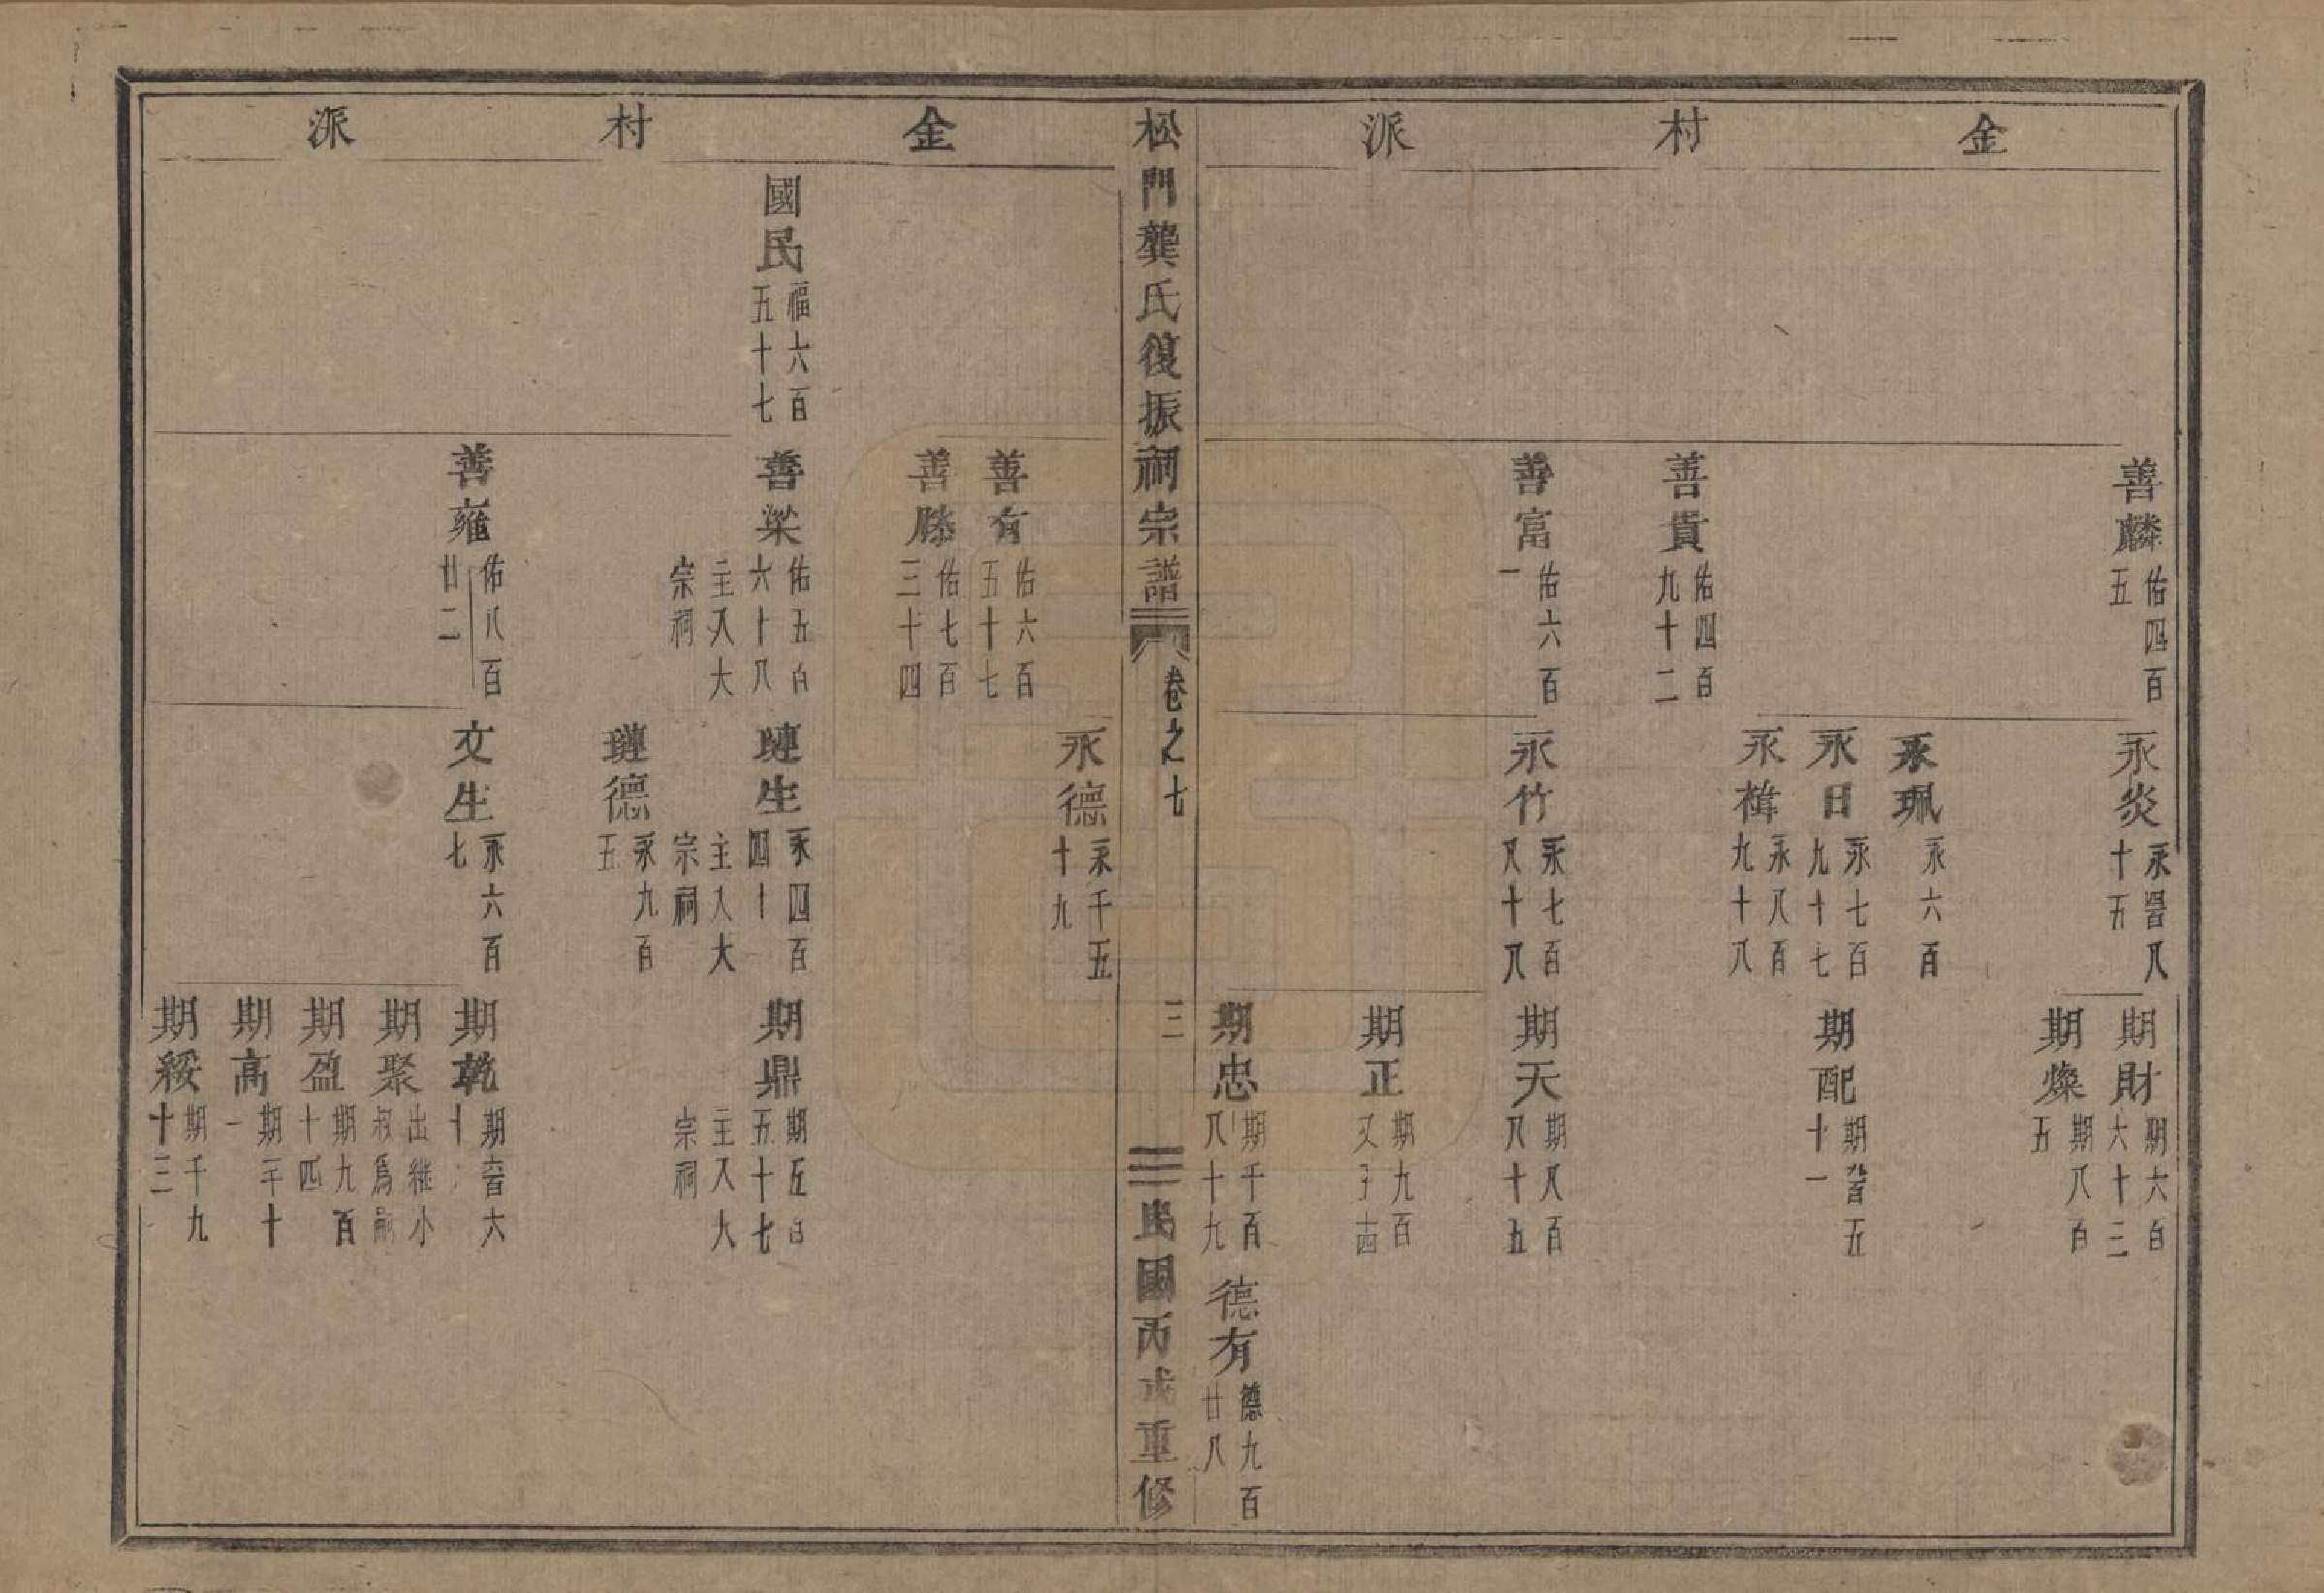 金村派
善麟 佑四百五
善貴 佑四百九十二
善富 佑六百一
永炎 永四百八十五
永珮 永六百
永日 永七百九十七
永禕 永八百九十八
永竹 永七百八十八
期財 期六百六十三
期燦 期八百五
期配 期九百五十一
期天 期八百八十五
期正 期九百
期忠 期千百八十九
德有 德九百廿八
松門龔氏復振祠宗譜 卷之七 三 民國丙戌重修
金村派
國民 福六百五十七
善有 佑六百五十七
善滕 佑七百三十四
善梁 佑五百六十八 主入大宗祠
善雍 佑八百廿二
永德 永千五十九
璉生 永四百四十 主入大宗祠
璉德 永九百五
文生 永六百七
期鼎 期五百五十七 主入大宗祠
期乾 期六百六十
期聚 出繼小叔爲嗣
期盈 期九百十四
期高 期千十一
期綏 期千九十三